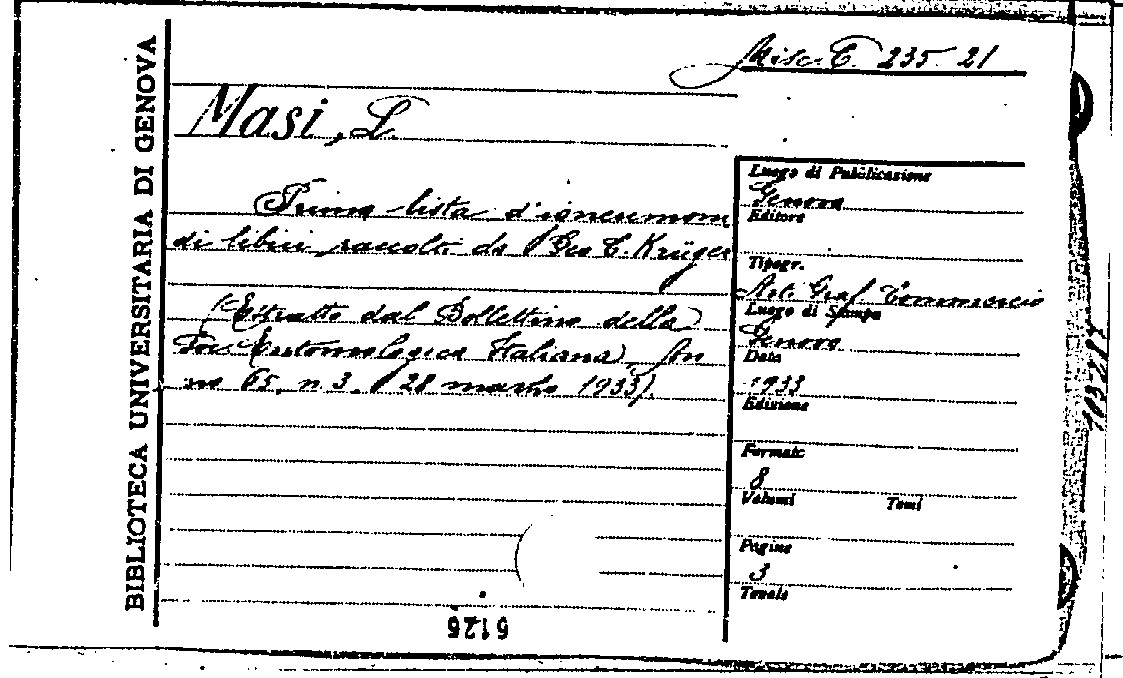 BIBLIOTECA UNIVERSITARIA DI GENOVA
Misc. C. 235. 21
Masi, L.
Prima lista d'igneumoni
di libici raccolti da Geo C. Krüger
(Estratto dal Bollettino della
Soc. Entomologica Italiana, An
no 65, n 3, 28 marzo 1933).
Luogo di Pubblicazione
Genova
Editore
Tipogr.
Art. Graf. Commercio
Luogo di Stampa
Genova
Data
1933
Edizione
Formato
8
Volumi Tomi
Pagine
3
Tavole
6126